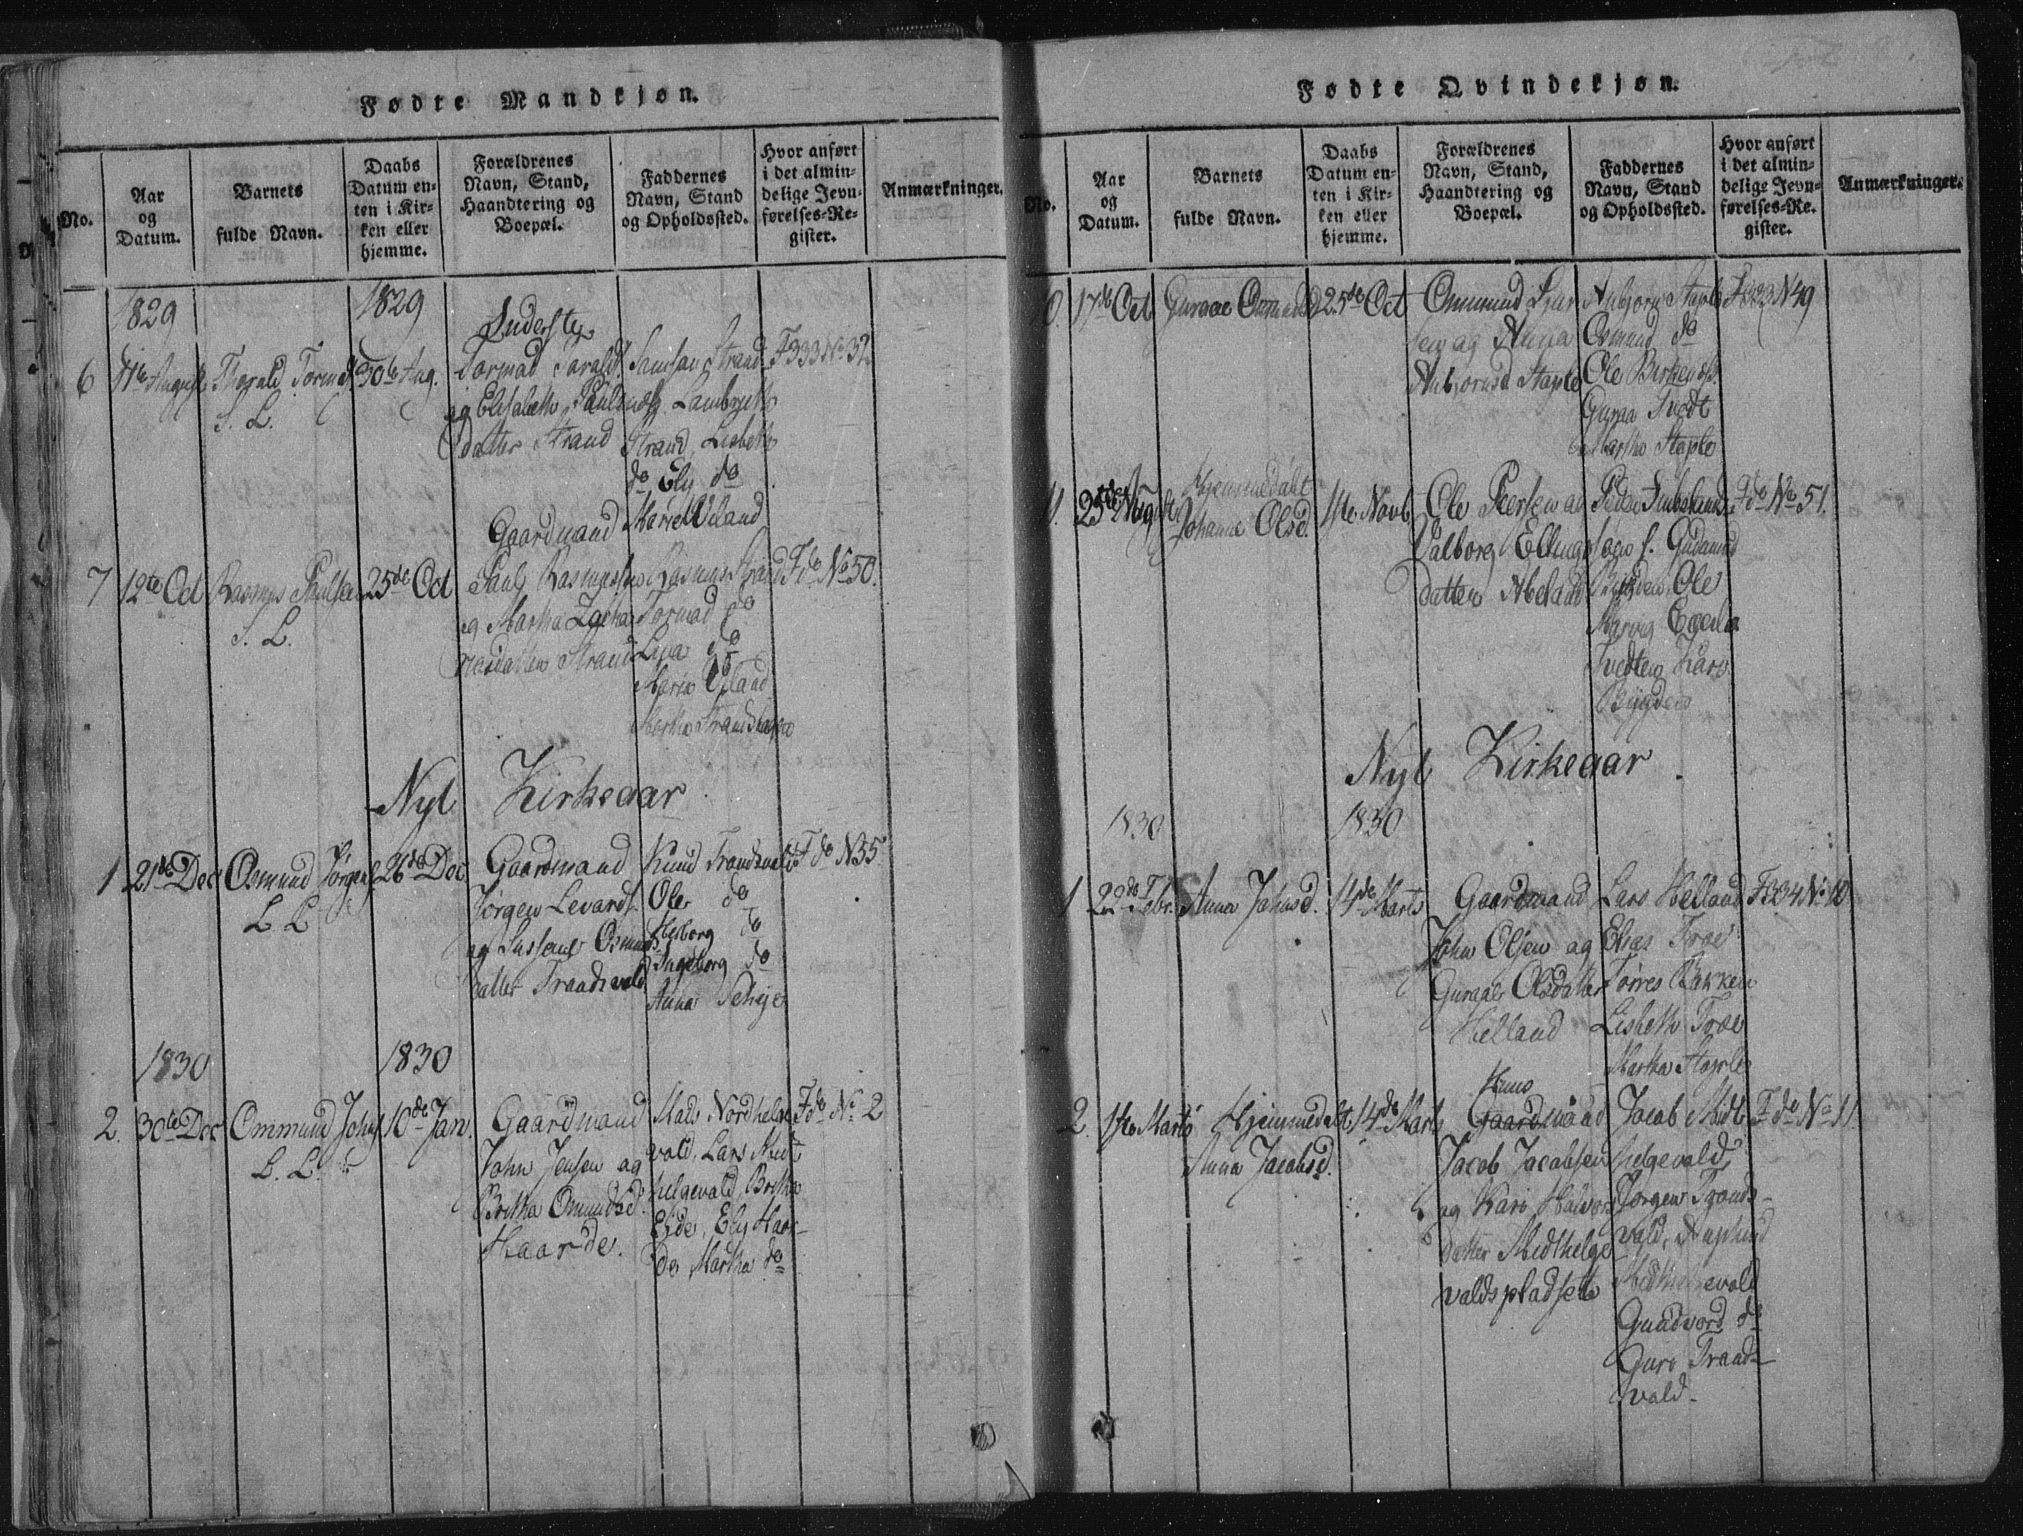 Fødte Mandkjøn.
No.
Aar
og
Datum.
Barnets
fulde Navn.
Daabs
Datum en-
ten i Kir-
ken eller
hjemme.
Forældrenes
Navn, Stand,
Haandtering og
Boepæl.
Faddernes
Navn, Stand
og Opholdssted.
Hvor anført
i det almin-
delige Jevn-
førelses-Re-
gister.
Anmærkninger.
1829
1829
6
August
Thorald Tormods
S. L.
30te Aug.
Tormod
og Elisabeth Pauls
datter Strand
Samson Strand
Lambregt
Strand, Lisbeth
do Ely do
Marie Øiland
F 333 No 32
7
12te Oct
Rasmus Paulsen
S. L.
25de Oct
Gaardmand
Paul Rasmussen
og Martha Zacha
riasdatter Strand
Rasmus Strand
Tormod do
Lina do
Maria Øiland
Martha Strand
F do No 50.
Nyt Kirkeaar
1
21de Dec
Osmund Jørgens
L. L.
26de Dec
Gaardmand
Jørgen Levards.
og Osmunds
datter Traadsvold
Knud Trandsvold
Ole do
do
Ingeborg do
Anna
F do N 35
1830
1830
2.
30te Dec
Ommund Johns
L. L.
10de Jan.
Gaardmand
John Jensen og
Britha Omundsd.
Haarde.
Mads Nordhelge
vold, Lars Midt
helgevold, Britha
Eyde, Ely Haar-
de, Martha do
F do No 2
Fødte Qvindekjøn.
No.
Aar
og
Datum.
Barnets
fulde Navn.
Daabs
Datum en-
ten i Kir-
ken eller
hjemme.
Forældrenes
Navn, Stand,
Haandtering og
Boepæl.
Faddernes
Navn, Stand
og Opholdssted.
Hvor anført
i det almin-
delige Jevn-
førelses-Re-
gister.
Anmærkninger.
10.
17de Oct
Guroe Ommunds
25de Oct
Ommund
sen og Anna
Anbjørnsd Staple
Anbjørn Staple
Osmund do
Ole
Guroe Tvedt
Martha Staple
F 333 N 49
11.
Hjemmedøbt
Johanne Olsd.
1te Novb
Ole Peersen og
Valborg Ellings
datter Abeland
Peder
sen f. Gudmund
Bygden, Ole
Tvedten Kari
Bygden
F do No 51.
Nyt Kirkeaar.
1830
1830
1
22de Febr.
Anna Johnsd.
14de Marts
Gaardmand
John Olsen og
Guroe Olsdatter
Helland
Lars Helland
Elias Troe
Torres Bakken
Lisbeth Troe
Martha Staple
F 334 No 10
2.
1te Marts
Hjemmedøbt
Anna Jacobsd.
14de Marts
Huus
Gaardmand
Jacob Jacobsen
og Kari Halvors
datter Midthelge
voldspladsen
Jacob Midt
helgevold,
Jørgen Trands-
vold,
Midthelgevold
Gundvord do
Guro Traads-
vold.
F do No 11